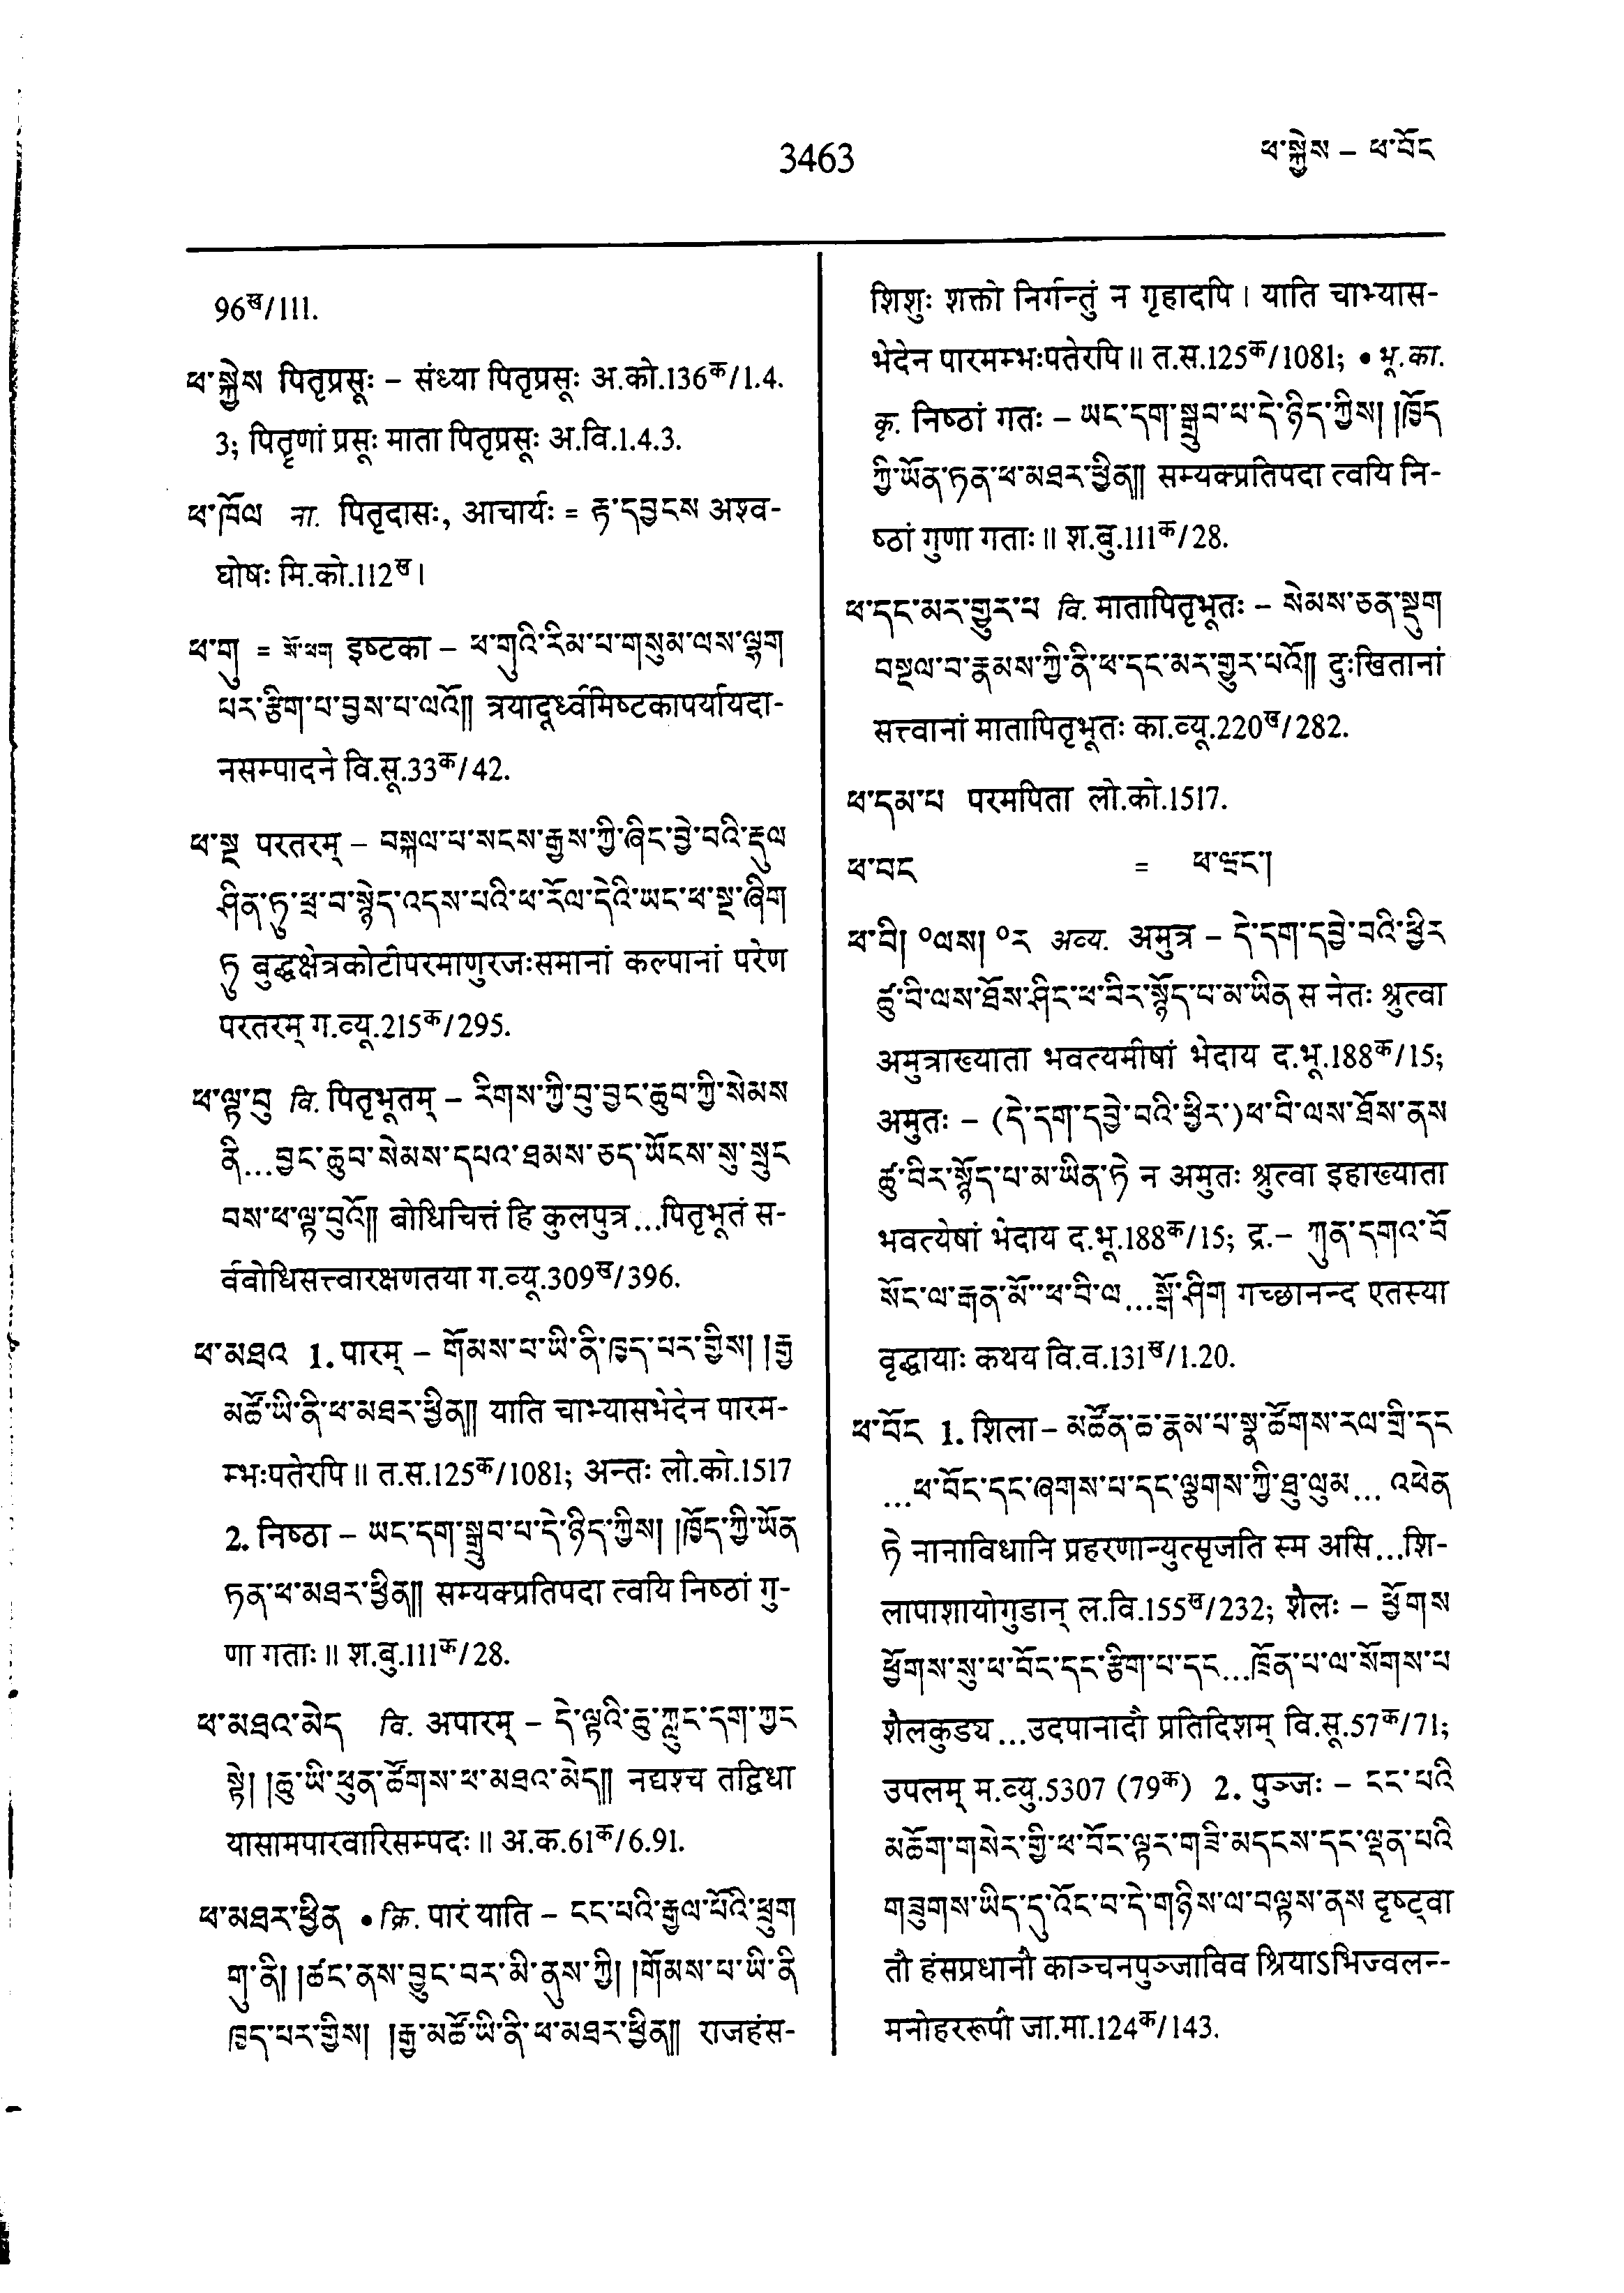 3463
ཕ་སྐྱེས – ཕ་བོང
96ख/111.
ཕ་སྐྱེས पितृप्रसूः – संध्या पितृप्रसूः अ.को.136क/1.4.
3; पितॄणां प्रसूः माता पितृप्रसूः अ.वि.1.4.3.
ཕ་ཁོལ ना. पितृदासः, आचार्यः = རྟ་དབྱངས अश्व-
घोषः मि.को.112ख।
ཕ་གུ = སོ་ཕག इष्टका – ཕ་གུའི་རིམ་པ་གསུམ་ལས་ལྷག
པར་རྩིག་པ་བྱས་པ་ལའོ།། त्रयादूर्ध्वमिष्टकापर्यायदा-
नसम्पादने वि.सू.33क/42.
ཕ་སྔ परतरम् – བསྐལ་པ་སངས་རྒྱས་ཀྱི་ཞིང་བྱེ་བའི་རྡུལ
ཤིན་ཏུ་ཕྲ་བ་སྙེད་འདས་པའི་ཕ་རོལ་དེའི་ཡང་ཕ་སྔ་ཞིག
ཏུ बुद्धक्षेत्रकोटीपरमाणुरजःसमानां कल्पानां परेण
परतरम् ग.व्यू.215क/295.
ཕ་ལྟ་བུ वि. पितृभूतम् – རིགས་ཀྱི་བུ་བྱང་ཆུབ་ཀྱི་སེམས
ནི...བྱང་ཆུབ་སེམས་དཔའ་ཐམས་ཅད་ཡོངས་སུ་སྲུང
བས་ཕ་ལྟ་བུའོ།། बोधिचित्तं हि कुलपुत्र...पितृभूतं स-
र्वबोधिसत्त्वारक्षणतया ग.व्यू.309ख/396.
ཕ་མཐའ 1. पारम् – གོམས་པ་ཡི་ནི་ཁྱད་པར་གྱིས། །རྒྱ
མཚོ་ཡི་ནི་ཕ་མཐར་ཕྱིན།། याति चाभ्यासभेदेन पारम-
म्भःपतेरपि॥ त.स.125क/1081; अन्तः लो.को.1517
2. निष्ठा – ཡང་དག་སྒྲུབ་པ་དེ་ཉིད་ཀྱིས། །ཁྱོད་ཀྱི་ཡོན
ཏན་ཕ་མཐར་ཕྱིན།། सम्यक्प्रतिपदा त्वयि निष्ठां गु-
णा गताः॥ श.बु.111क/28.
ཕ་མཐའ་མེད वि. अपारम् – དེ་ལྟའི་ཆུ་ཀླུང་དག་ཀྱང
སྟེ། །ཆུ་ཡི་ཕུན་ཚོགས་ཕ་མཐའ་མེད།། नद्यश्च तद्विधा
यासामपारवारिसम्पदः॥ अ.क.61क/6.91.
ཕ་མཐར་ཕྱིན • क्रि. पारं याति – ངང་པའི་རྒྱལ་པོའི་ཕྲུག
གུ་ནི། །ཚང་ནས་བྱུང་བར་མི་ནུས་ཀྱི། །གོམས་པ་ཡི་ནི
ཁྱད་པར་གྱིས། །རྒྱ་མཚོ་ཡི་ནི་ཕ་མཐར་ཕྱིན།། राजहंस-
शिशुः शक्तो निर्गन्तुं न गृहादपि। याति चाभ्यास-
भेदेन पारमम्भःपतेरपि॥ त.स.125क/1081; • भू.का.
कृ. निष्ठां गतः – ཡང་དག་སྒྲུབ་པ་དེ་ཉིད་ཀྱིས། །ཁྱོད
ཀྱི་ཡོན་ཏན་ཕ་མཐར་ཕྱིན།། सम्यक्प्रतिपदा त्वयि नि-
ष्ठां गुणा गताः॥ श.बु.111क/28.
ཕ་དང་མར་གྱུར་པ वि. मातापितृभूतः – སེམས་ཅན་སྡུག
བསྔལ་བ་རྣམས་ཀྱི་ནི་ཕ་དང་མར་གྱུར་པའོ།། दुःखितानां
सत्त्वानां मातापितृभूतः का.व्यू.220ख/282.
ཕ་དམ་པ परमपिता लो.को.1517.
ཕ་བང = ཕ་ཝང་།
ཕ་བི། ॰ལས། ॰ར अव्य. अमुत्र – དེ་དག་དབྱེ་བའི་ཕྱིར
ཚུ་བི་ལས་ཐོས་ཤིང་ཕ་བིར་སྟོད་པ་མ་ཡིན स नेतः श्रुत्वा
अमुत्राख्याता भवत्यमीषां भेदाय द.भू.188क/15;
अमुतः – (དེ་དག་དབྱེ་བའི་ཕྱིར་)ཕ་བི་ལས་ཐོས་ནས
ཚུ་བིར་སྟོད་པ་མ་ཡིན་ཏེ न अमुतः श्रुत्वा इहाख्याता
भवत्येषां भेदाय द.भू.188क/15; द्र.– ཀུན་དགའ་བོ
སོང་ལ་རྒན་མོ་ཕ་བི་ལ...སྒོ་ཤིག गच्छानन्द एतस्या
वृद्धायाः कथय वि.व.131ख/1.20.
ཕ་བོང 1. शिला – མཚོན་ཆ་རྣམ་པ་སྣ་ཚོགས་རལ་གྲི་དང
...ཕ་བོང་དང་ཞགས་པ་དང་ལྕགས་ཀྱི་ཐུ་ལུམ... འཕེན
ཏེ नानाविधानि प्रहरणान्युत्सृजति स्म असि...शि-
लापाशायोगुडान् ल.वि.155ख/232; शैलः – ཕྱོགས
ཕྱོགས་སུ་ཕ་བོང་དང་རྩིག་པ་དང...ཁྲོན་པ་ལ་སོགས་པ
शैलकुड्य...उदपानादौ प्रतिदिशम् वि.सू.57क/71;
उपलम् म.व्यु.5307 (79क) 2. पुञ्जः – ངང་པའི
མཆོག་གསེར་གྱི་ཕ་བོང་ལྟར་གཟི་མདངས་དང་ལྡན་པའི
གཟུགས་ཡིད་དུ་འོང་བ་དེ་གཉིས་ལ་བལྟས་ནས दृष्ट्वा
तौ हंसप्रधानौ काञ्चनपुञ्जाविव श्रियाऽभिज्वलन्-
मनोहररूपौ जा.मा.124क/143.